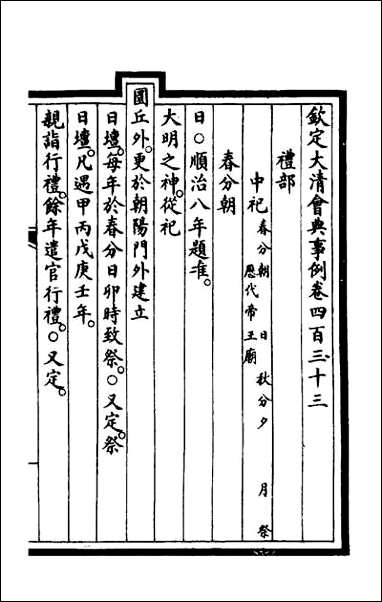 欽定大清會典事例卷四百三十三
禮部
中祀春分朝 日 秋分夕 月 祭
歷代帝王廟
春分朝
日○順治八年題准。
大明之神。從祀
圜丘外。更於朝陽門外建立
日壇。每年於春分日卯時致祭。○又定。祭
日壇。凡遇甲丙戊庚壬年。
親詣行禮。餘年遣官行禮。○又定。